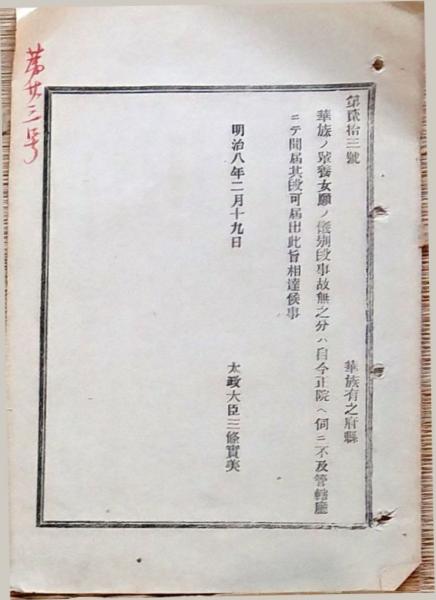 第廿三号
第貳拾三號
華族有之府縣
華族ノ輩養女願ノ儀別段事故無之分ハ自今正院ヘ伺ニ不及管轄廳
ニテ聞届其段可届出此旨相達候事
明治八年二月十九日
太政大臣三條實美